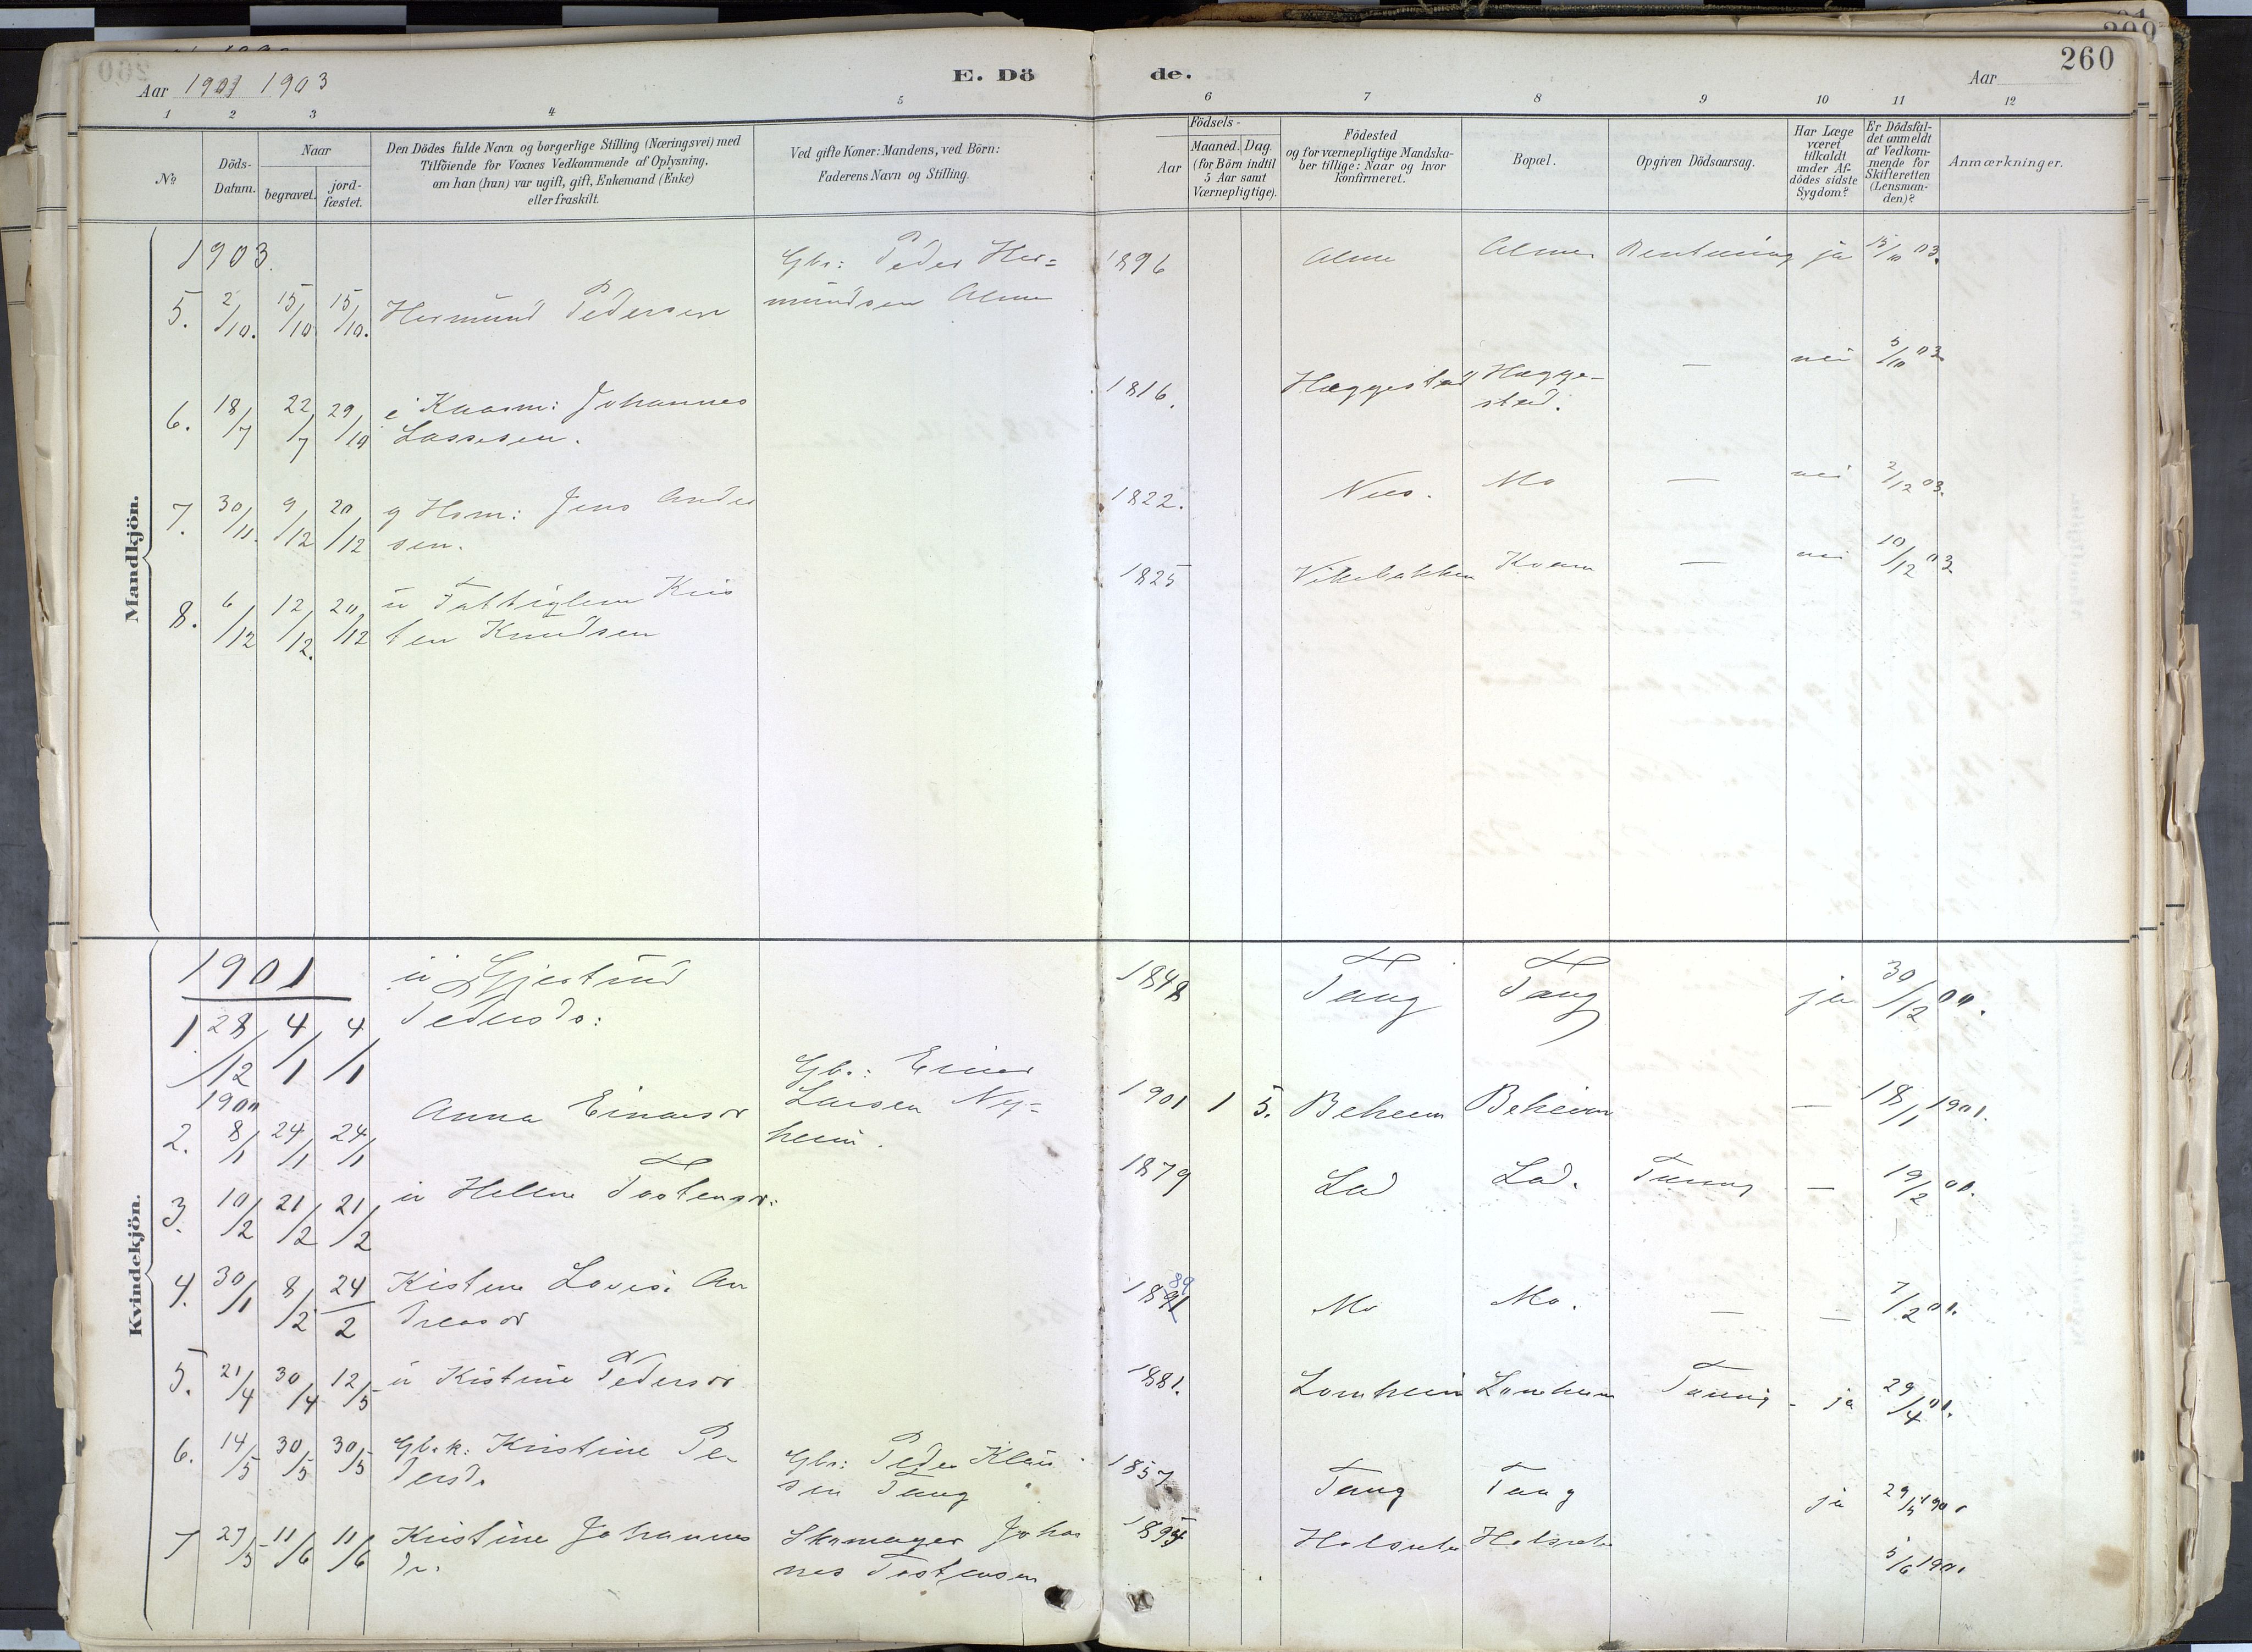 260
Aar 1901 1903
E. Dö de.
Aar
1 2 3 4 5 6 7 8 9 10 11 12
No
Döds-
Datum.
Naar
begravet.
jord-
fæstet.
Den Dödes fulde Navn og borgerlige Stilling (Næringsvei) med
Tilföiende for Voxnes Vedkommende af Oplysning,
om han (hun) var ugift, gift, Enkemand (Enke)
eller fraskilt.
Ved gifte Koner: Mandens, ved Börn:
Faderens Navn og Stilling.
Födsels-
Aar
Maaned. Dag.
(for Börn indtil
5 Aar samt
Værnepligtige).
Födested
og for værnepligtige Mandska-
ber tillige: Naar og hvor
konfirmeret.
Bopæl.
Opgiven Dödsaarsag.
Har Læge
været
tilkaldt
under Af-
dödes sidste
Sygdom?
Er Dödsfal-
det anmeldt
af Vedkom-
mende for
Skifteretten
(Lensman-
den)?
Anmærkninger.
Mandkjön.
1903.
Gbr: Peder Her=
1896 Alme Alme ja 15/10 03.
5. 2/10. 15/10 15/10. Hermund Pedersen mundsen Alme
6. 18/7 22/7 29/10 e Kaarm: Johannes
Lassesen.
1816. Hæggestad Hægge-
stad. — nei 5/10 03.
7. 30/11. 9/12 20/12 g Hsm: Jens Ander
sen.
1822. Nees. Mo — nei 2/12 03.
8. 6/12 12/12. 20/12 u Fattiglem Kris
ten Knudsen
1825 Vikebakken Kvam — nei 10/12 03
Kvindekjön.
1901 u Gjertrud
1 28/12 1900 4/1 4/1 Pedersdr:
1848 Tang Tang ja 30/12 00.
2. 8/1 24/1 24/1 Anna Einarsdr
Gbr: Einar
Larsen Ny=
heim.
1901 1 5. Beheim Beheim — 18/1 1901.
3. 10/2 21/2 21/2 u Hellene Tostensdr:
1879 Lad Lad. Tæring — 19/2 01.
4. 30/1 8/2 24/2 Kistine Lovise An
dreasdr
1891 89 Mo Mo. — — 7/2 01.
5. 21/4 30/4 12/5 u Kistine Pedersdr
1881. Lomheim Lomheim Tæring - ja 29/4 01.
6. 14/5 30/5 30/5 Gbrk: Kristine Pe-
dersd.
Gbr: Peder Klau
sen Tang
1857 Tang Tang ja 1901
7 27/5 11/6 11/6 Kristine Johannes
dr.
Skomager Johan
nes Tostensen
Holsæter Holsæter 5/6 1901